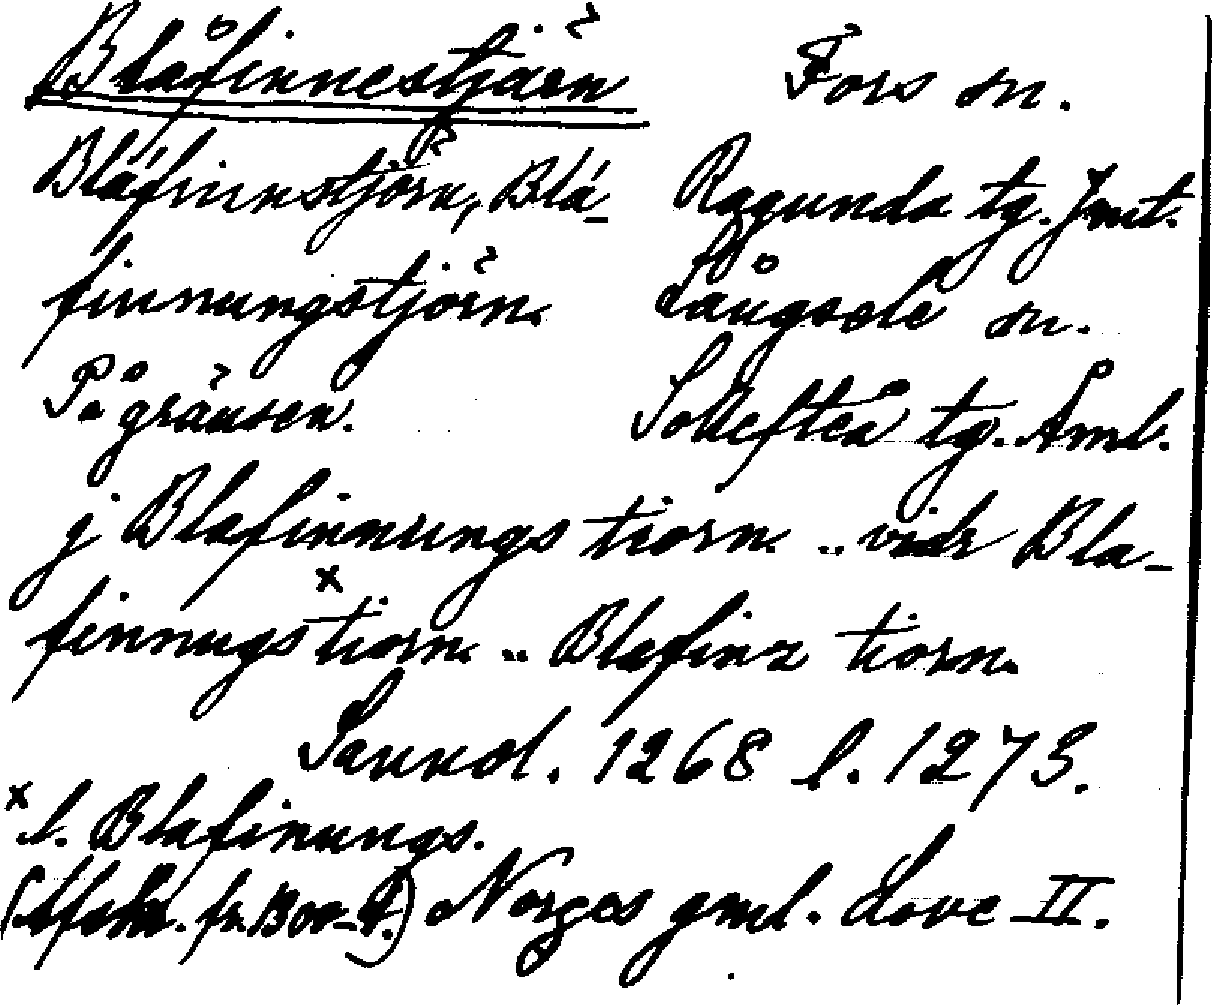 Blåfinnestjärn Fors sn.
Bláfinnstjörn, Blá- Ragunda tg. Jmt.
finnungstjörn. Långsele sn.
På gränsen. Sollefteå tg. Åml.
j Blafinnungs tiorn .. vidr Bla-
finnugs x tiorn .. Blafinz tiorn.
Sannol. 1268 l. 1273.
x l. Blafinnungs.
(Afskr. fr. 1300-t.) Norges gml. Love II.